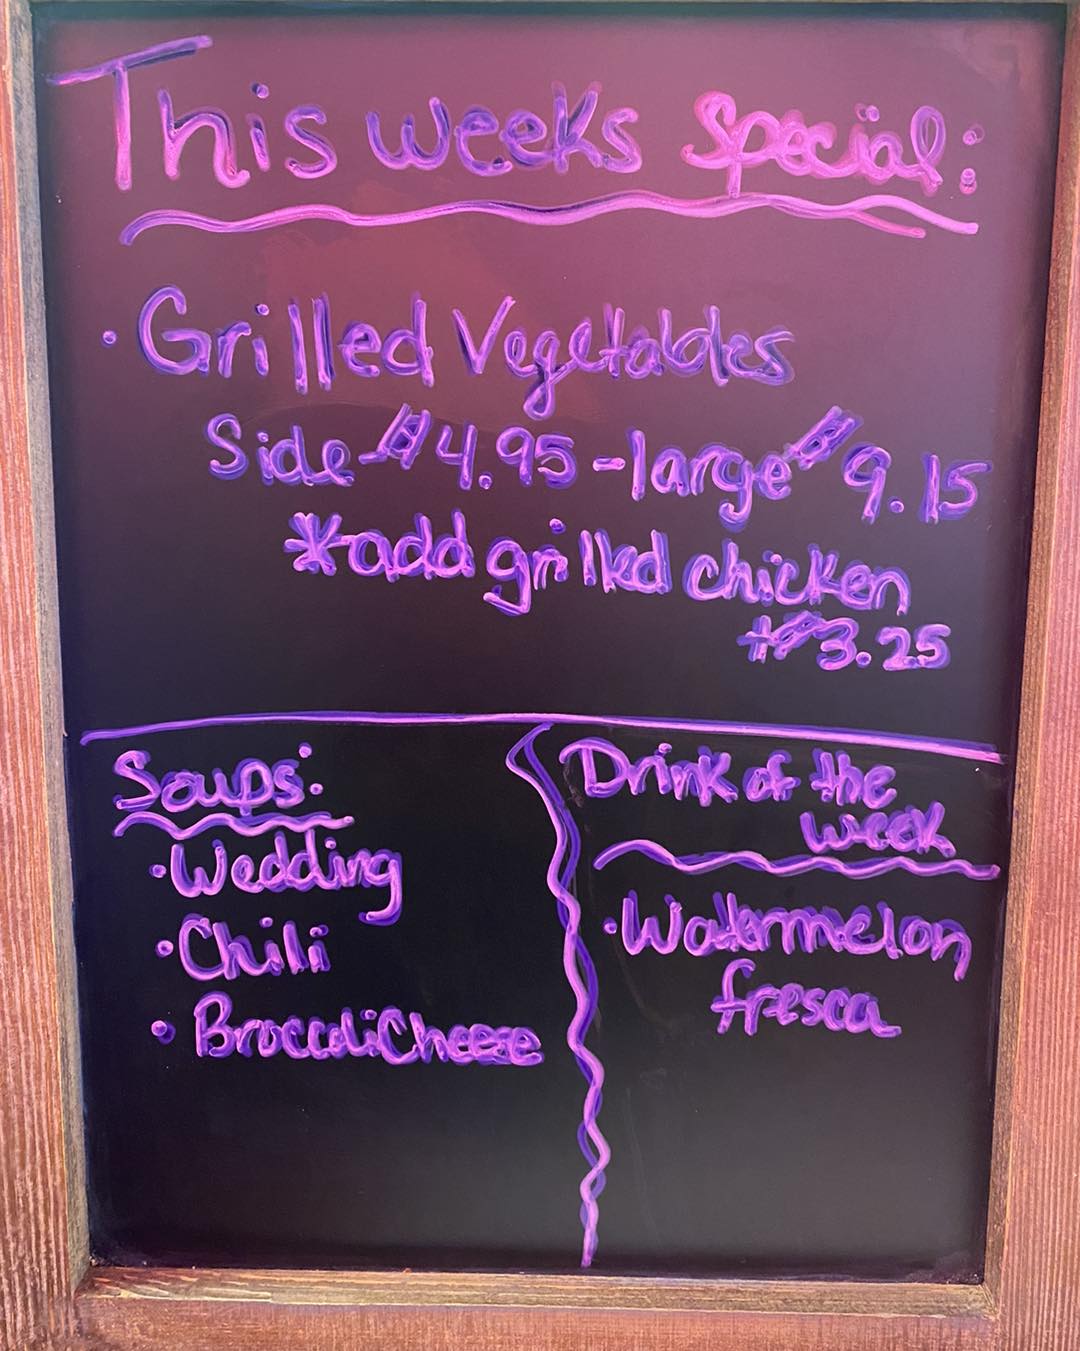 This weeks special:
• Grilled Vegetables
Side $4.95 - large $9.15
*add grilled chicken
+$3.25
Soups:
• Wedding
• Chili
• Broccoli Cheese
Drink of the
week
• Watermelon
fresca